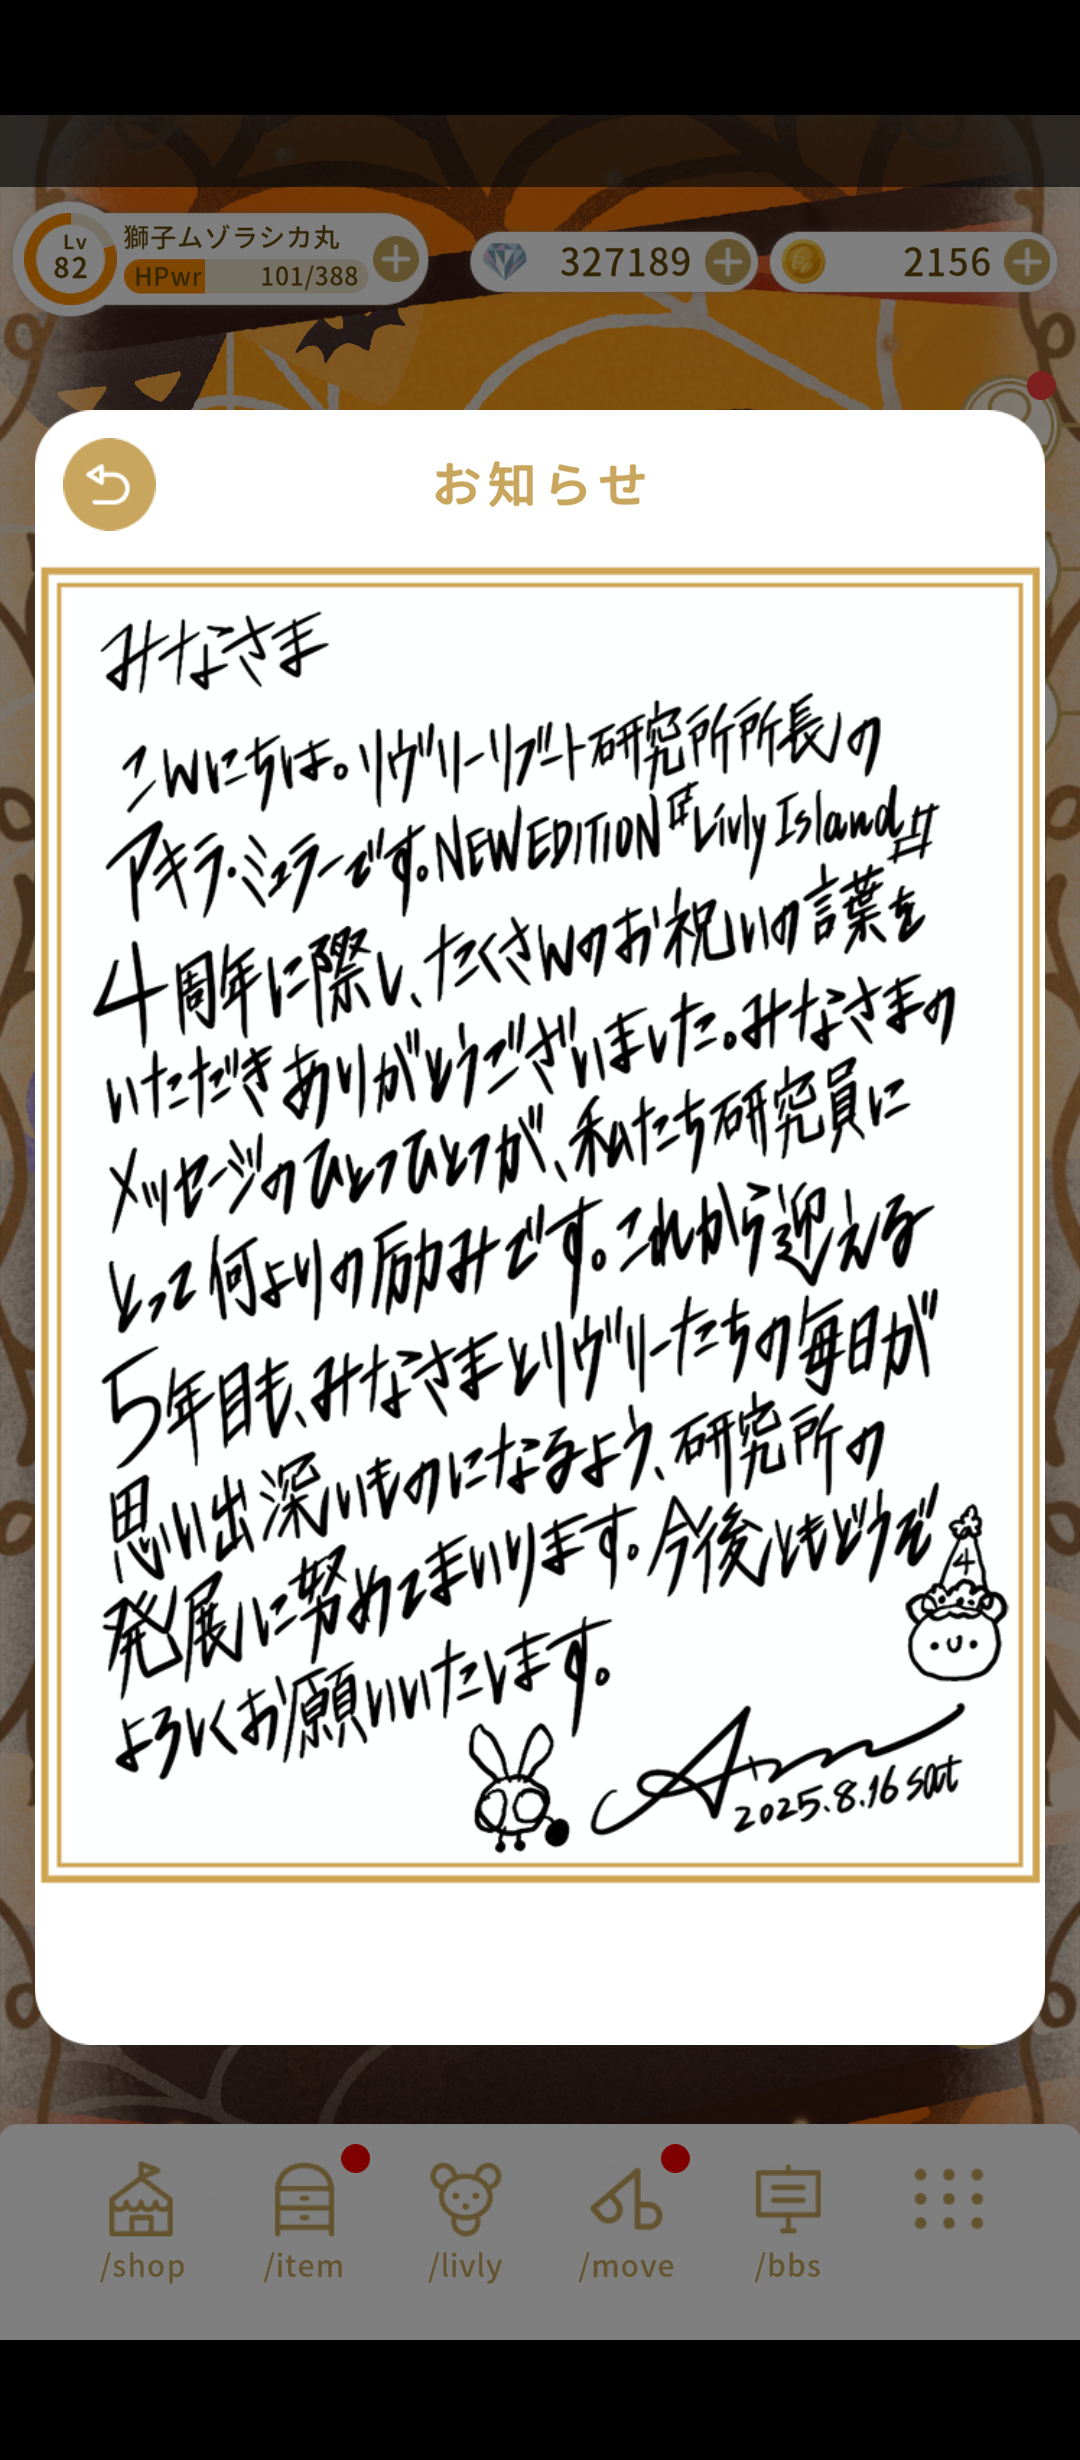 Lv
82
獅子ムゾラシカ丸
HPwr 101/388
327189
2156
お知らせ
みなさま
こんにちは。リヴリーリブート研究所所長の
アキラ・ミュラーです。NEW EDITION『Livly Island』
4周年に際し、たくさんのお祝いの言葉を
いただきありがとうございました。みなさまの
メッセージのひとつひとつが、私たち研究員に
とって何よりの励みです。これから迎える
5年目も、みなさまとリヴリーたちの毎日が
思い出深いものになるよう、研究所の
発展に努めてまいります。今後ともどうぞ
よろしくお願いいたします。
4
2025.8.16 sat
/shop
/item
/livly
/move
/bbs